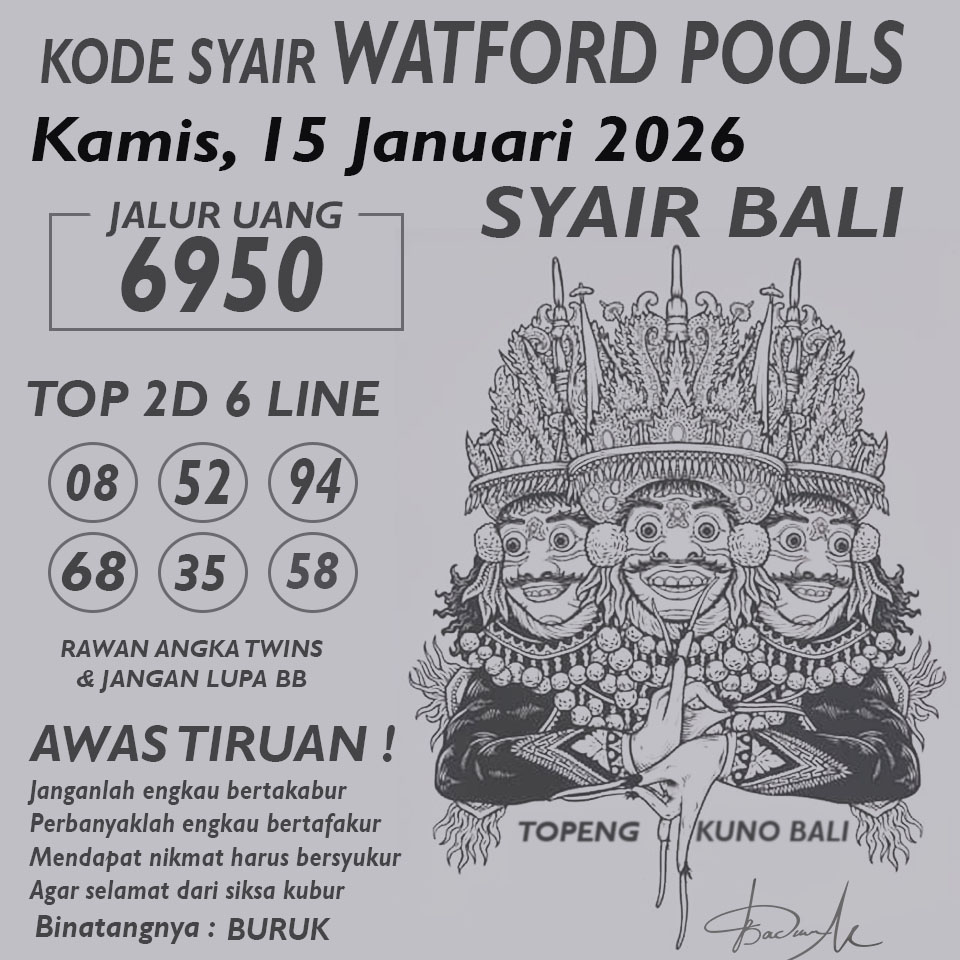 KODE SYAIR WATFORD POOLS
Kamis, 15 Januari 2026
SYAIR BALI
JALUR UANG
6950
TOP 2D 6 LINE
08 52 94
68 35 58
RAWAN ANGKA TWINS
& JANGAN LUPA BB
AWAS TIRUAN !
Janganlah engkau bertakabur
Perbanyaklah engkau bertafakur
Mendapat nikmat harus bersyukur
Agar selamat dari siksa kubur
Binatangnya : BURUK
TOPENG KUNO BALI